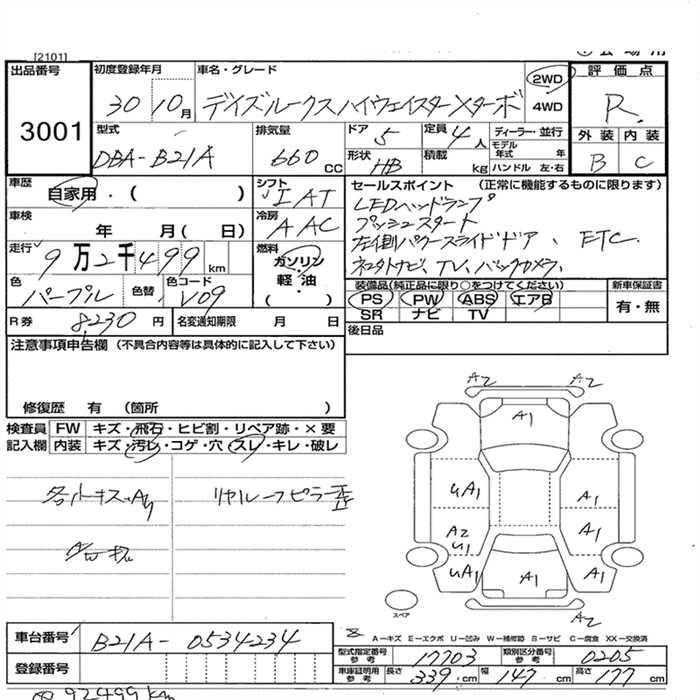 [2101]
出品番号
3001
初度登録年月
30 10月
車名・グレード
デイズルークス ハイウェイスターXターボ
2WD
4WD
評価点
R
外装 内装
B C
型式
DBA-B21A
排気量
660 CC
ドア 5
定員 4人
形状 HB
積載 kg
ディーラー・並行
モデル年式 年
ハンドル 左・右
車歴
自家用・( )
シフト
I AT
セールスポイント (正常に機能するものに限ります)
LEDヘッドランプ
プッシュスタート
左右側パワースライドドア、 ETC
TV、バックカメラ、
車検
年 月( 日)
冷房
AAC
走行
9万2千499km
燃料
ガソリン・
軽・油
( )
色
パープル
色替
色コード
V09
装備品(純正品に限り○をつけてください)
PS PW ABS エアB
SR ナビ TV
新車保証書
有・無
R券 8230円
名変通知期限 月 日
後日品
注意事項申告欄 (不具合内容等は具体的に記入して下さい)
修復歴 有 (箇所 )
検査員
記入欄
FW キズ・飛石・ヒビ割・リペア跡・×要
内装 キズ・汚レ・コゲ・穴・スレ・キレ・破レ
リヤルーフピラー歪
A2 A2
A1
uA1 A1
A2
u1 A1
uA1 A1 A1
A2
スペア
A-キズ E-エクボ U-凹み W-補修跡 S-サビ C-腐食 XX-交換済
車台番号
B21A-0534234
登録番号
型式指定番号
参考
17703
類別区分番号
参考
0205
車庫証明用
参考
長さ 339 cm
幅 147 cm
高さ 177 cm
92499km